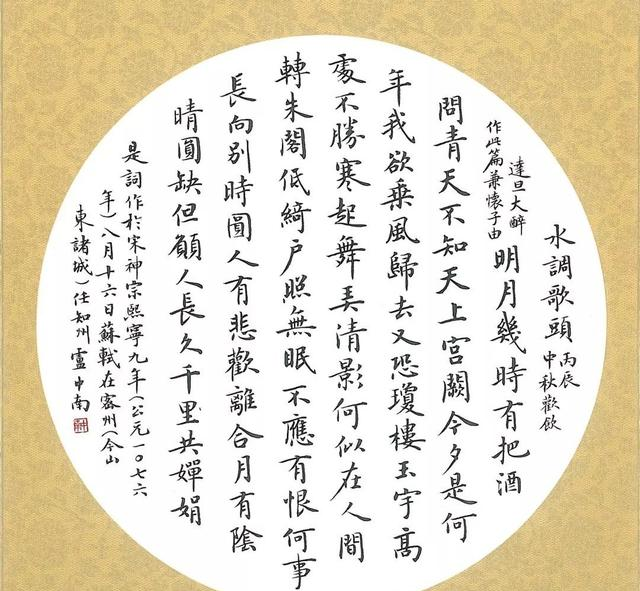 水調歌頭 丙辰
中秋歡飲
達旦大醉
作此篇兼懷子由
明月幾時有把酒
問青天不知天上宮闕今夕是何
年我欲乘風歸去又恐瓊樓玉宇高
處不勝寒起舞弄清影何似在人間
轉朱閣低綺户照無眠不應有恨何事
長向別時圓人有悲歡離合月有陰
晴圓缺但願人長久千里共嬋娟
是詞作於宋神宗熙寧九年（公元一〇七六
年）八月十六日蘇軾在密州（今山
東諸城）任知州 盧中南